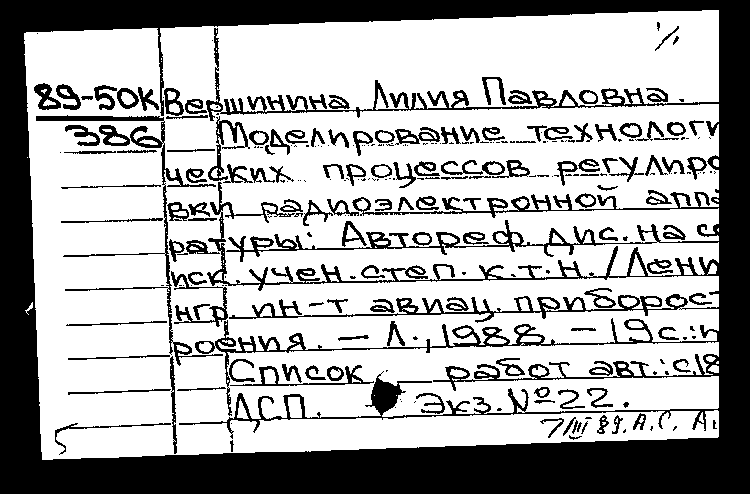 89-50К Вершинина, Лилия Павловна.
386 Моделирование технологи
ческих процессов регулиро
вки радиоэлектронной аппа
ратуры: Автореф. дис. на со
иск. учен. степ. к.т.н. / Лени
нгр. ин-т авиац. приборост
роения. — Л., 1988. — 19 с.: и
Список работ авт.: с. 18
ДСП. Экз. № 22.
7/III 89. А.С.